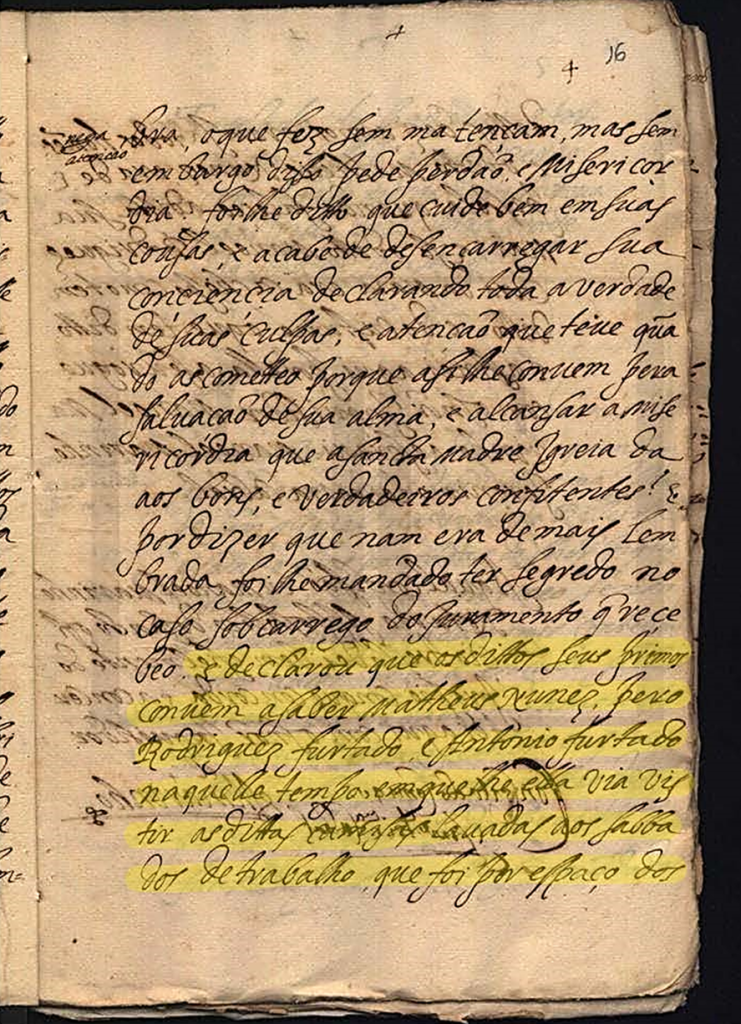 16
nega
atencao
bra, oque fez sem ma tençam, mas sem
embargo disso pede perdaõ, e Misericor
dia foilhe ditto que cuide bem em suas
cousas, e acabe de desencarregar sua
conciencia declarando toda a verdade
de suas culpas, e atencaõ que teve quã
do as cometteo porque assi lhe convem pera
salvacaõ de sua alma, e alcansar a mise
ricordia que a sancta Madre Igreia da
aos bons, e verdadeiros confitentes! E
por dizer que nam era de mais lem
brada, foilhe mandado ter segredo no
caso sob carrego do Juramento q̃ rece
beo. E declarou que os dittos seus primos
convem a saber Matheus Nunez, Pero
Rodriguez furtado, e Antonio furtado
naquelle tempo em que lhe ella via vis
tir as dittas camisas lavadas aos sabba
dos de trabalho, que foi por espaço dos